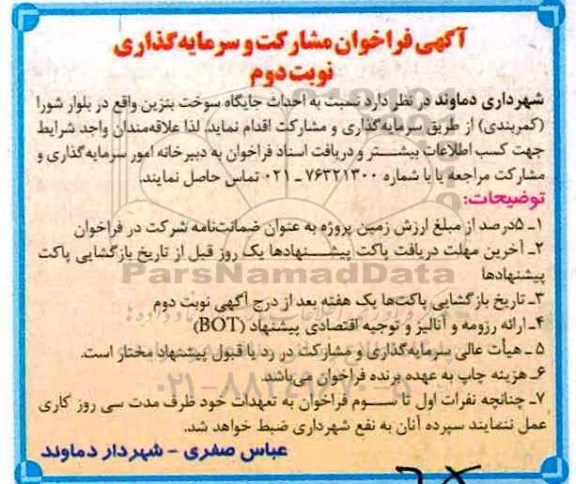 آگهی فراخوان مشارکت و سرمایه‌گذاری
نوبت دوم
شهرداری دماوند در نظر دارد نسبت به احداث جایگاه سوخت بنزین واقع در بلوار شورا
(کمربندی) از طریق سرمایه‌گذاری و مشارکت اقدام نماید. لذا علاقه‌مندان واجد شرایط
جهت کسب اطلاعات بیشتر و دریافت اسناد فراخوان به دبیرخانه امور سرمایه‌گذاری و
مشارکت مراجعه یا با شماره ۷۶۳۲۱۳۰۰ ـ ۰۲۱ تماس حاصل نمایند.
توضیحات:
۱ـ ۵درصد از مبلغ ارزش زمین پروژه به عنوان ضمانت‌نامه شرکت در فراخوان
۲ـ آخرین مهلت دریافت پاکت پیشنهادها یک روز قبل از تاریخ بازگشایی پاکت
پیشنهادها
۳ـ تاریخ بازگشایی پاکت‌ها یک هفته بعد از درج آگهی نوبت دوم
۴ـ ارائه رزومه و آنالیز و توجیه اقتصادی پیشنهاد (BOT)
۵ ـ هیأت عالی سرمایه‌گذاری و مشارکت در رد یا قبول پیشنهاد مختار است.
۶ـ هزینه چاپ به عهده برنده فراخوان می‌باشد.
۷ـ چنانچه نفرات اول تا سوم فراخوان به تعهدات خود ظرف مدت سی روز کاری
عمل ننمایند سپرده آنان به نفع شهرداری ضبط خواهد شد.
عباس صفری - شهردار دماوند
ParsNamadData